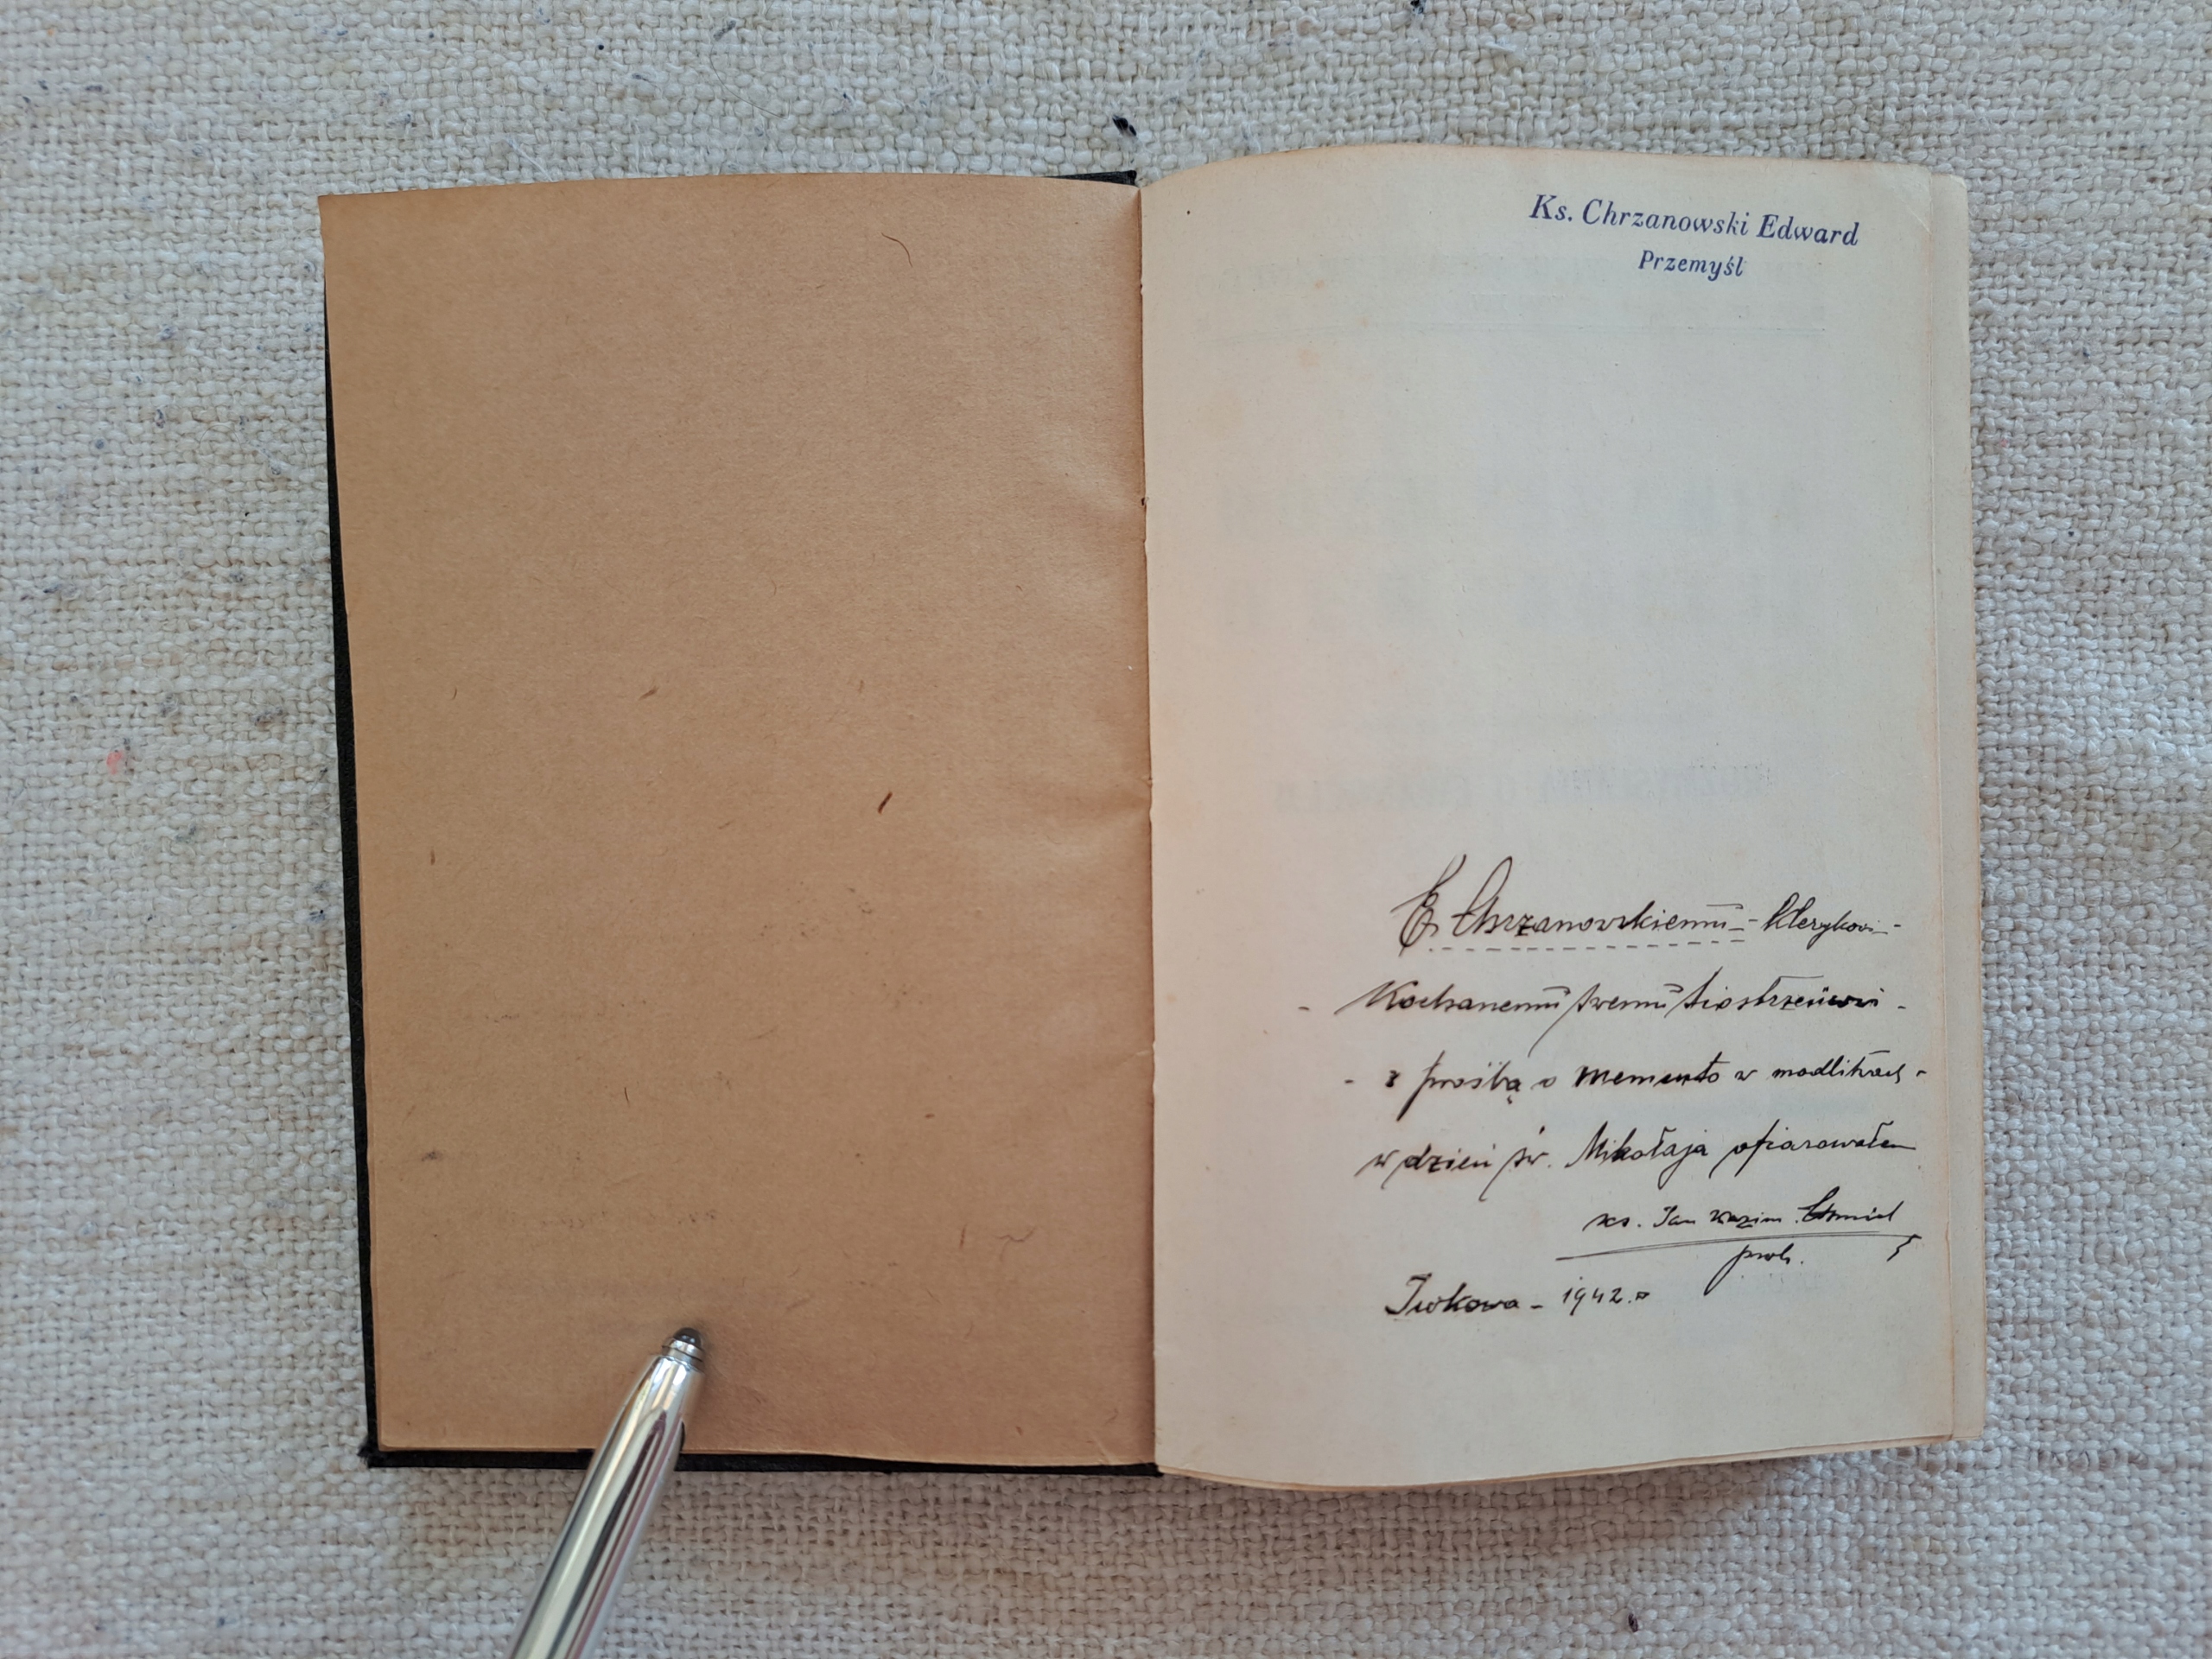 Ks. Chrzanowski Edward
Przemyśl
E. Chrzanowskiemu - klerykowi -
- Kochanemu swemu siostrzeńcowi -
- z prośbą o memento w modlitwach -
w dzień św. Mikołaja ofiarowałem
ks. Jan Chmiel
prob.
Iwkowa - 1942.